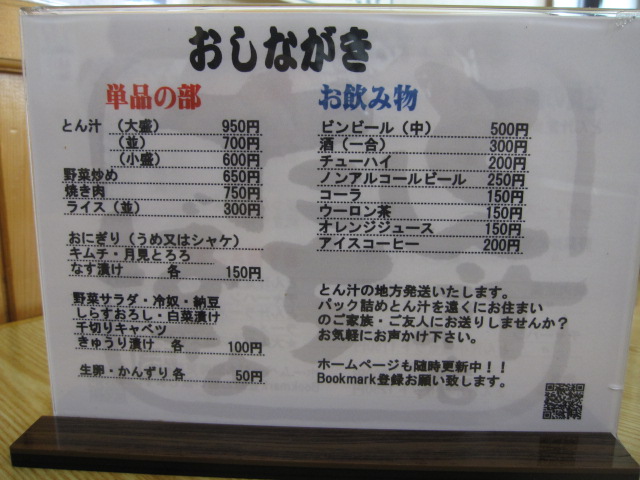 おしながき
単品の部
とん汁 （大盛） 950円
（並） 700円
（小盛） 600円
野菜炒め 650円
焼き肉 750円
ライス（並） 300円
おにぎり（うめ又はシャケ）
キムチ・月見とろろ
なす漬け 各 150円
野菜サラダ・冷奴・納豆
しらすおろし・白菜漬け
千切りキャベツ
きゅうり漬け 各 100円
生卵・かんずり各 50円
お飲み物
ビンビール（中） 500円
酒（一合） 300円
チューハイ 200円
ノンアルコールビール 250円
コーラ 150円
ウーロン茶 150円
オレンジジュース 150円
アイスコーヒー 200円
とん汁の地方発送いたします。
パック詰めとん汁を遠くにお住まい
のご家族・ご友人にお送りしませんか？
お気軽にお声かけ下さい。
ホームページも随時更新中！！
Bookmark登録お願い致します。